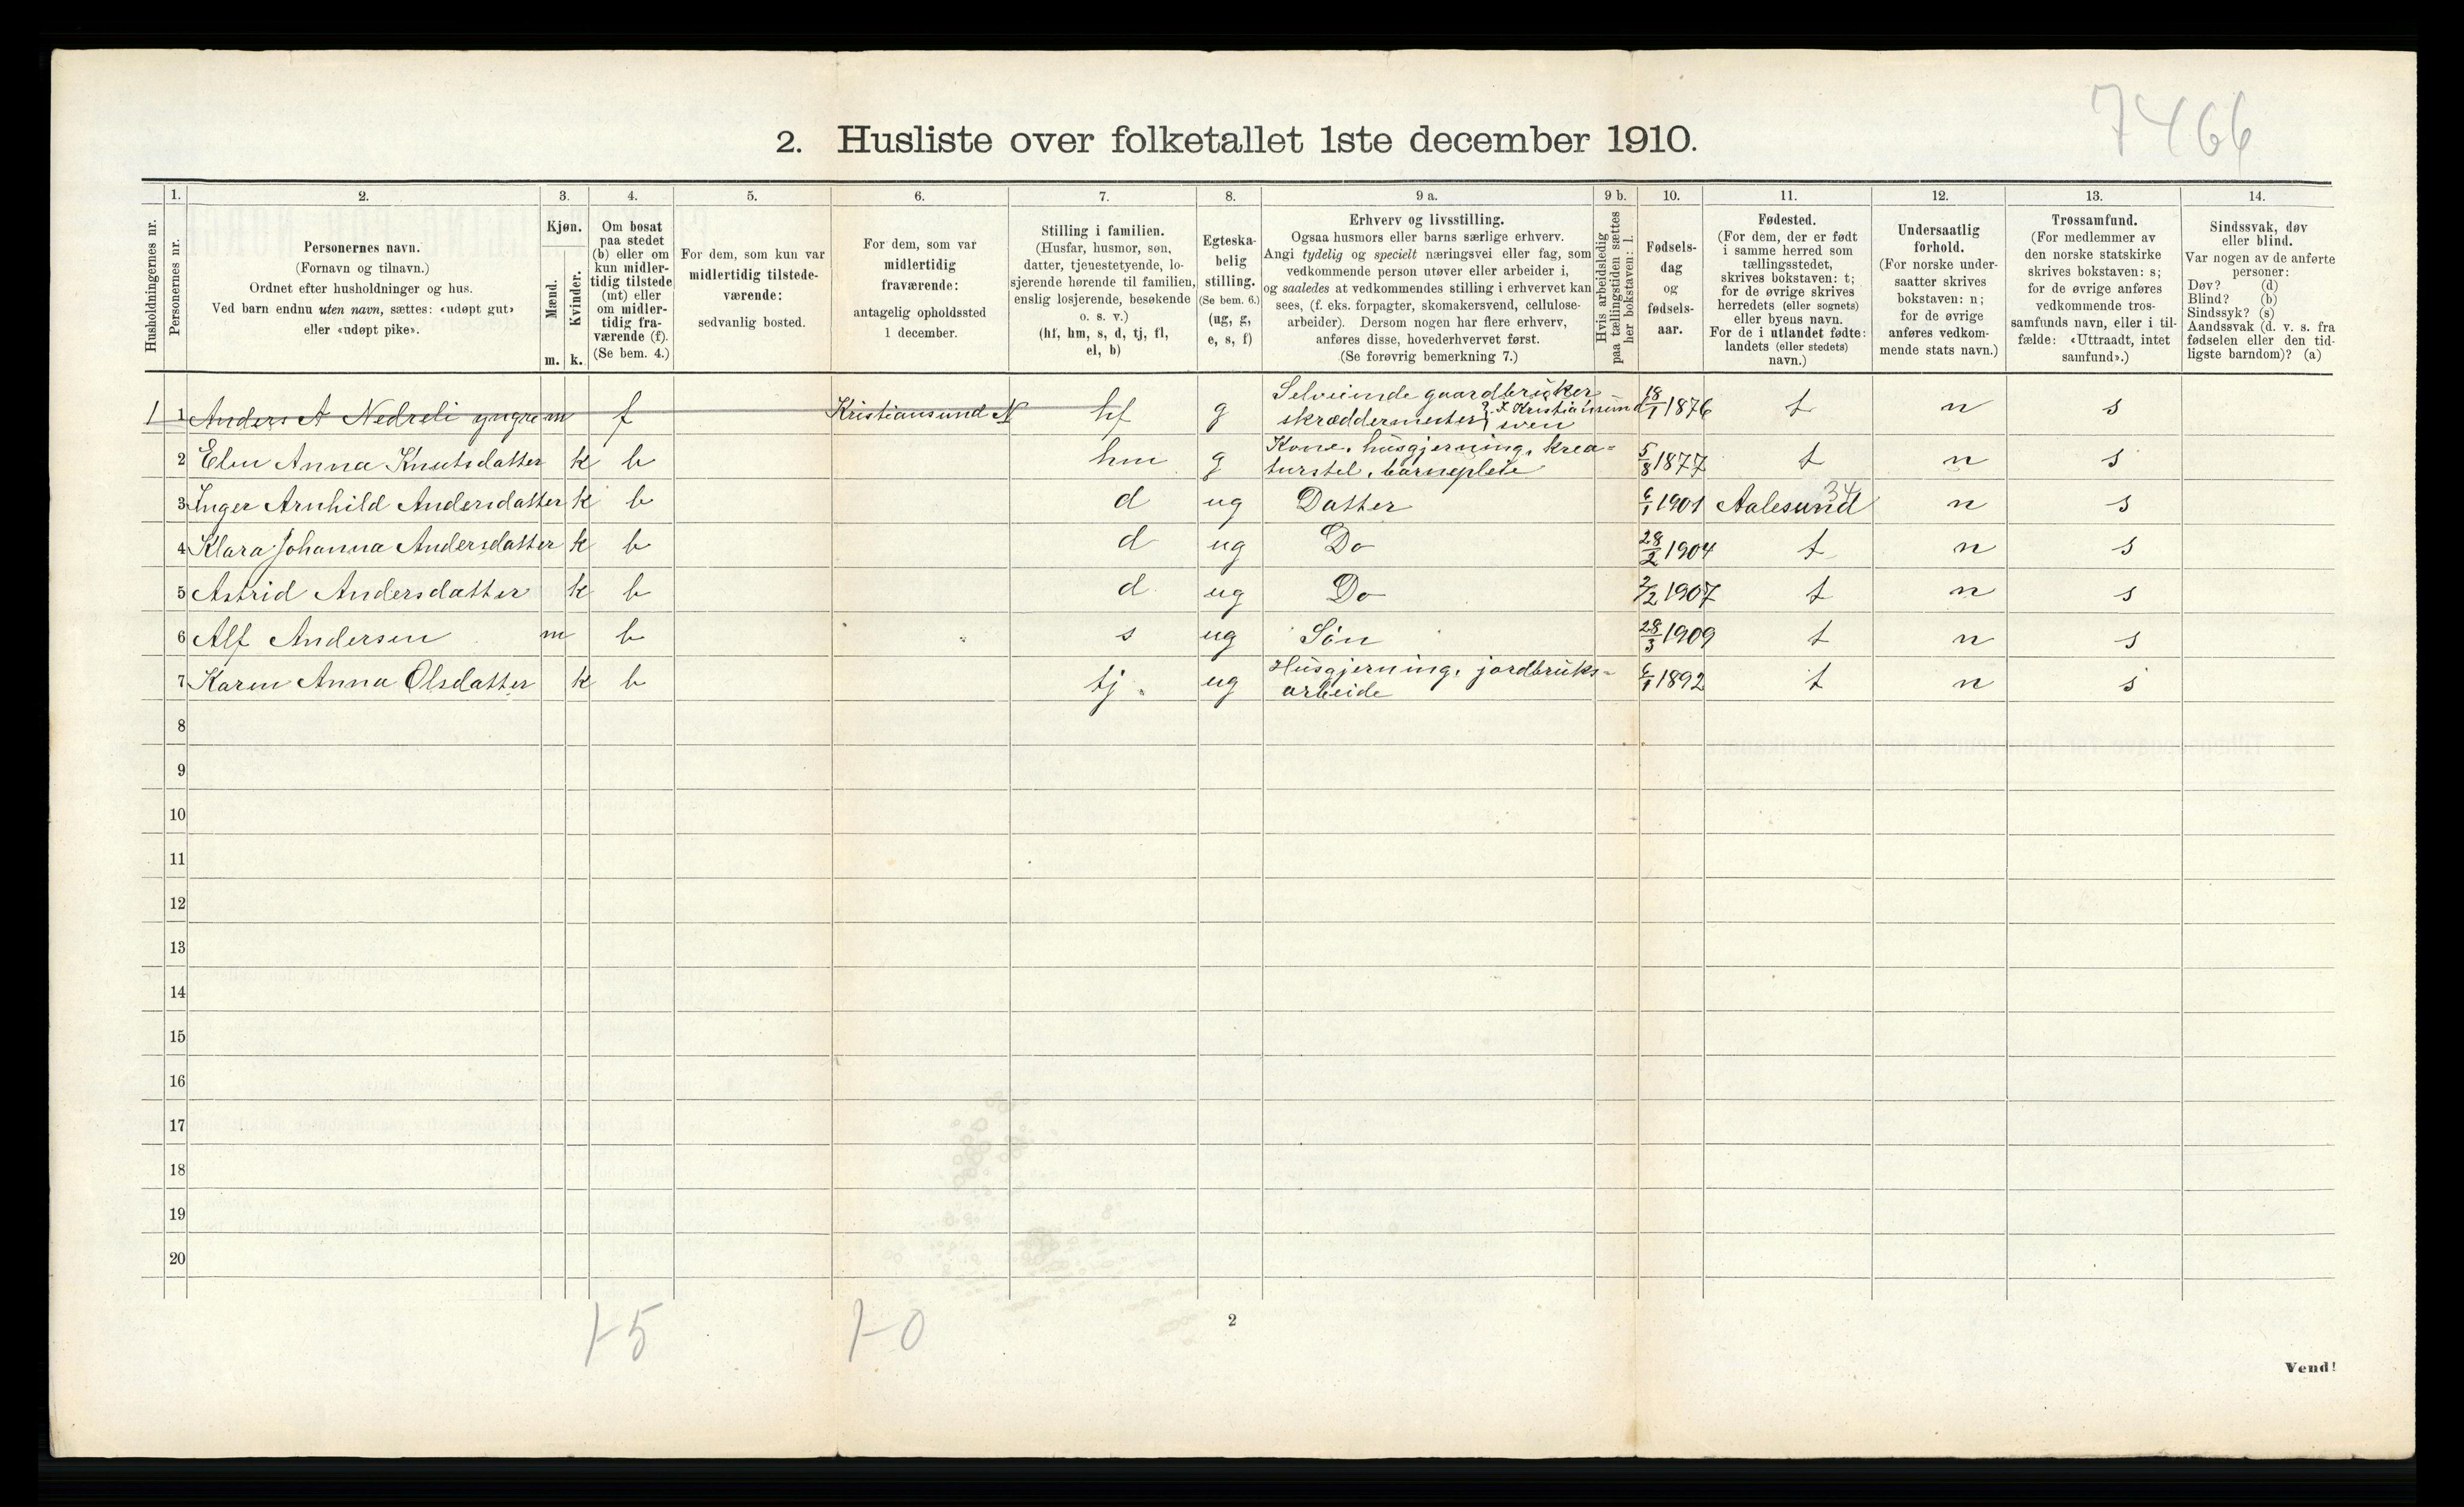 7466
2. Husliste over folketallet 1ste december 1910.
Husholdningernes nr.
1.
Personernes nr.
2.
Personernes navn.
(Fornavn og tilnavn.)
Ordnet efter husholdninger og hus.
Ved barn endnu uten navn, sættes: «udøpt gut»
eller «udøpt pike».
3.
Kjøn.
Mænd.
m.
Kvinder.
k.
4.
Om bosat
paa stedet
(b) eller om
kun midler-
tidig tilstede
(mt) eller
om midler-
tidig fra-
værende (f).
(Se bem. 4.)
5.
For dem, som kun var
midlertidig tilstede-
værende:
sedvanlig bosted.
6.
For dem, som var
midlertidig
fraværende:
antagelig opholdssted
1 december.
7.
Stilling i familien.
(Husfar, husmor, søn,
datter, tjenestetyende, lo-
sjerende hørende til familien,
enslig losjerende, besøkende
o. s. v.)
(hf, hm, s, d, tj, fl,
el, b)
8.
Egteska-
belig
stilling.
(Se bem. 6.)
(ug, g,
e, s, f)
9 a.
Erhverv og livsstilling.
Ogsaa husmors eller barns særlige erhverv.
Angi tydelig og specielt næringsvei eller fag, som
vedkommende person utøver eller arbeider i,
og saaledes at vedkommendes stilling i erhvervet kan
sees, (f. eks. forpagter, skomakersvend, cellulose-
arbeider). Dersom nogen har flere erhverv,
anføres disse, hovederhvervet først.
(Se forøvrig bemerkning 7.)
9 b.
Hvis arbeidsledig
paa tællingstiden sættes
her bokstaven: l.
10.
Fødsels-
dag
og
fødsels-
aar.
11.
Fødested.
(For dem, der er født
i samme herred som
tællingsstedet,
skrives bokstaven: t;
for de øvrige skrives
herredets (eller sognets)
eller byens navn.
For de i utlandet fødte:
landets (eller stedets)
navn.)
12.
Undersaatlig
forhold.
(For norske under-
saatter skrives
bokstaven: n;
for de øvrige
anføres vedkom-
mende stats navn.)
13.
Trossamfund.
(For medlemmer av
den norske statskirke
skrives bokstaven: s;
for de øvrige anføres
vedkommende tros-
samfunds navn, eller i til-
fælde: «Uttraadt, intet
samfund».)
14.
Sindssvak, døv
eller blind.
Var nogen av de anførte
personer:
Døv? (d)
Blind? (b)
Sindssyk? (s)
Aandssvak (d. v. s. fra
fødselen eller den tid-
ligste barndom)? (a)
1 1 Anders A Nedreli yngre m f Kristiansund N hf g Selveiende gaardbruker skræddermester I Kristiansund 18/1 1876 t n s
2 Elen Anna Knutsdatter k b hm g Kone, husgjerning, krea= turstel, barnepleie 5/8 1877 t n s
3 Inger Arnhild Andersdatter k b d ug Datter 6/1 1901 Aalesund 34 n s
4 Klara Johanna Andersdatter k b d ug Do 28/2 1904 t n s
5 Astrid Andersdatter k b d ug Do 2/2 1907 t n s
6 Alf Andersen m b s ug Søn 28/3 1909 t n s
7 Karen Anna Olsdatter k b tj. ug Husgjerning, jordbruks= arbeide 6/1 1892 t n s
8
9
10
11
12
13
14
15
16
17
18
19
20
1-5 1-0
2
Vend!